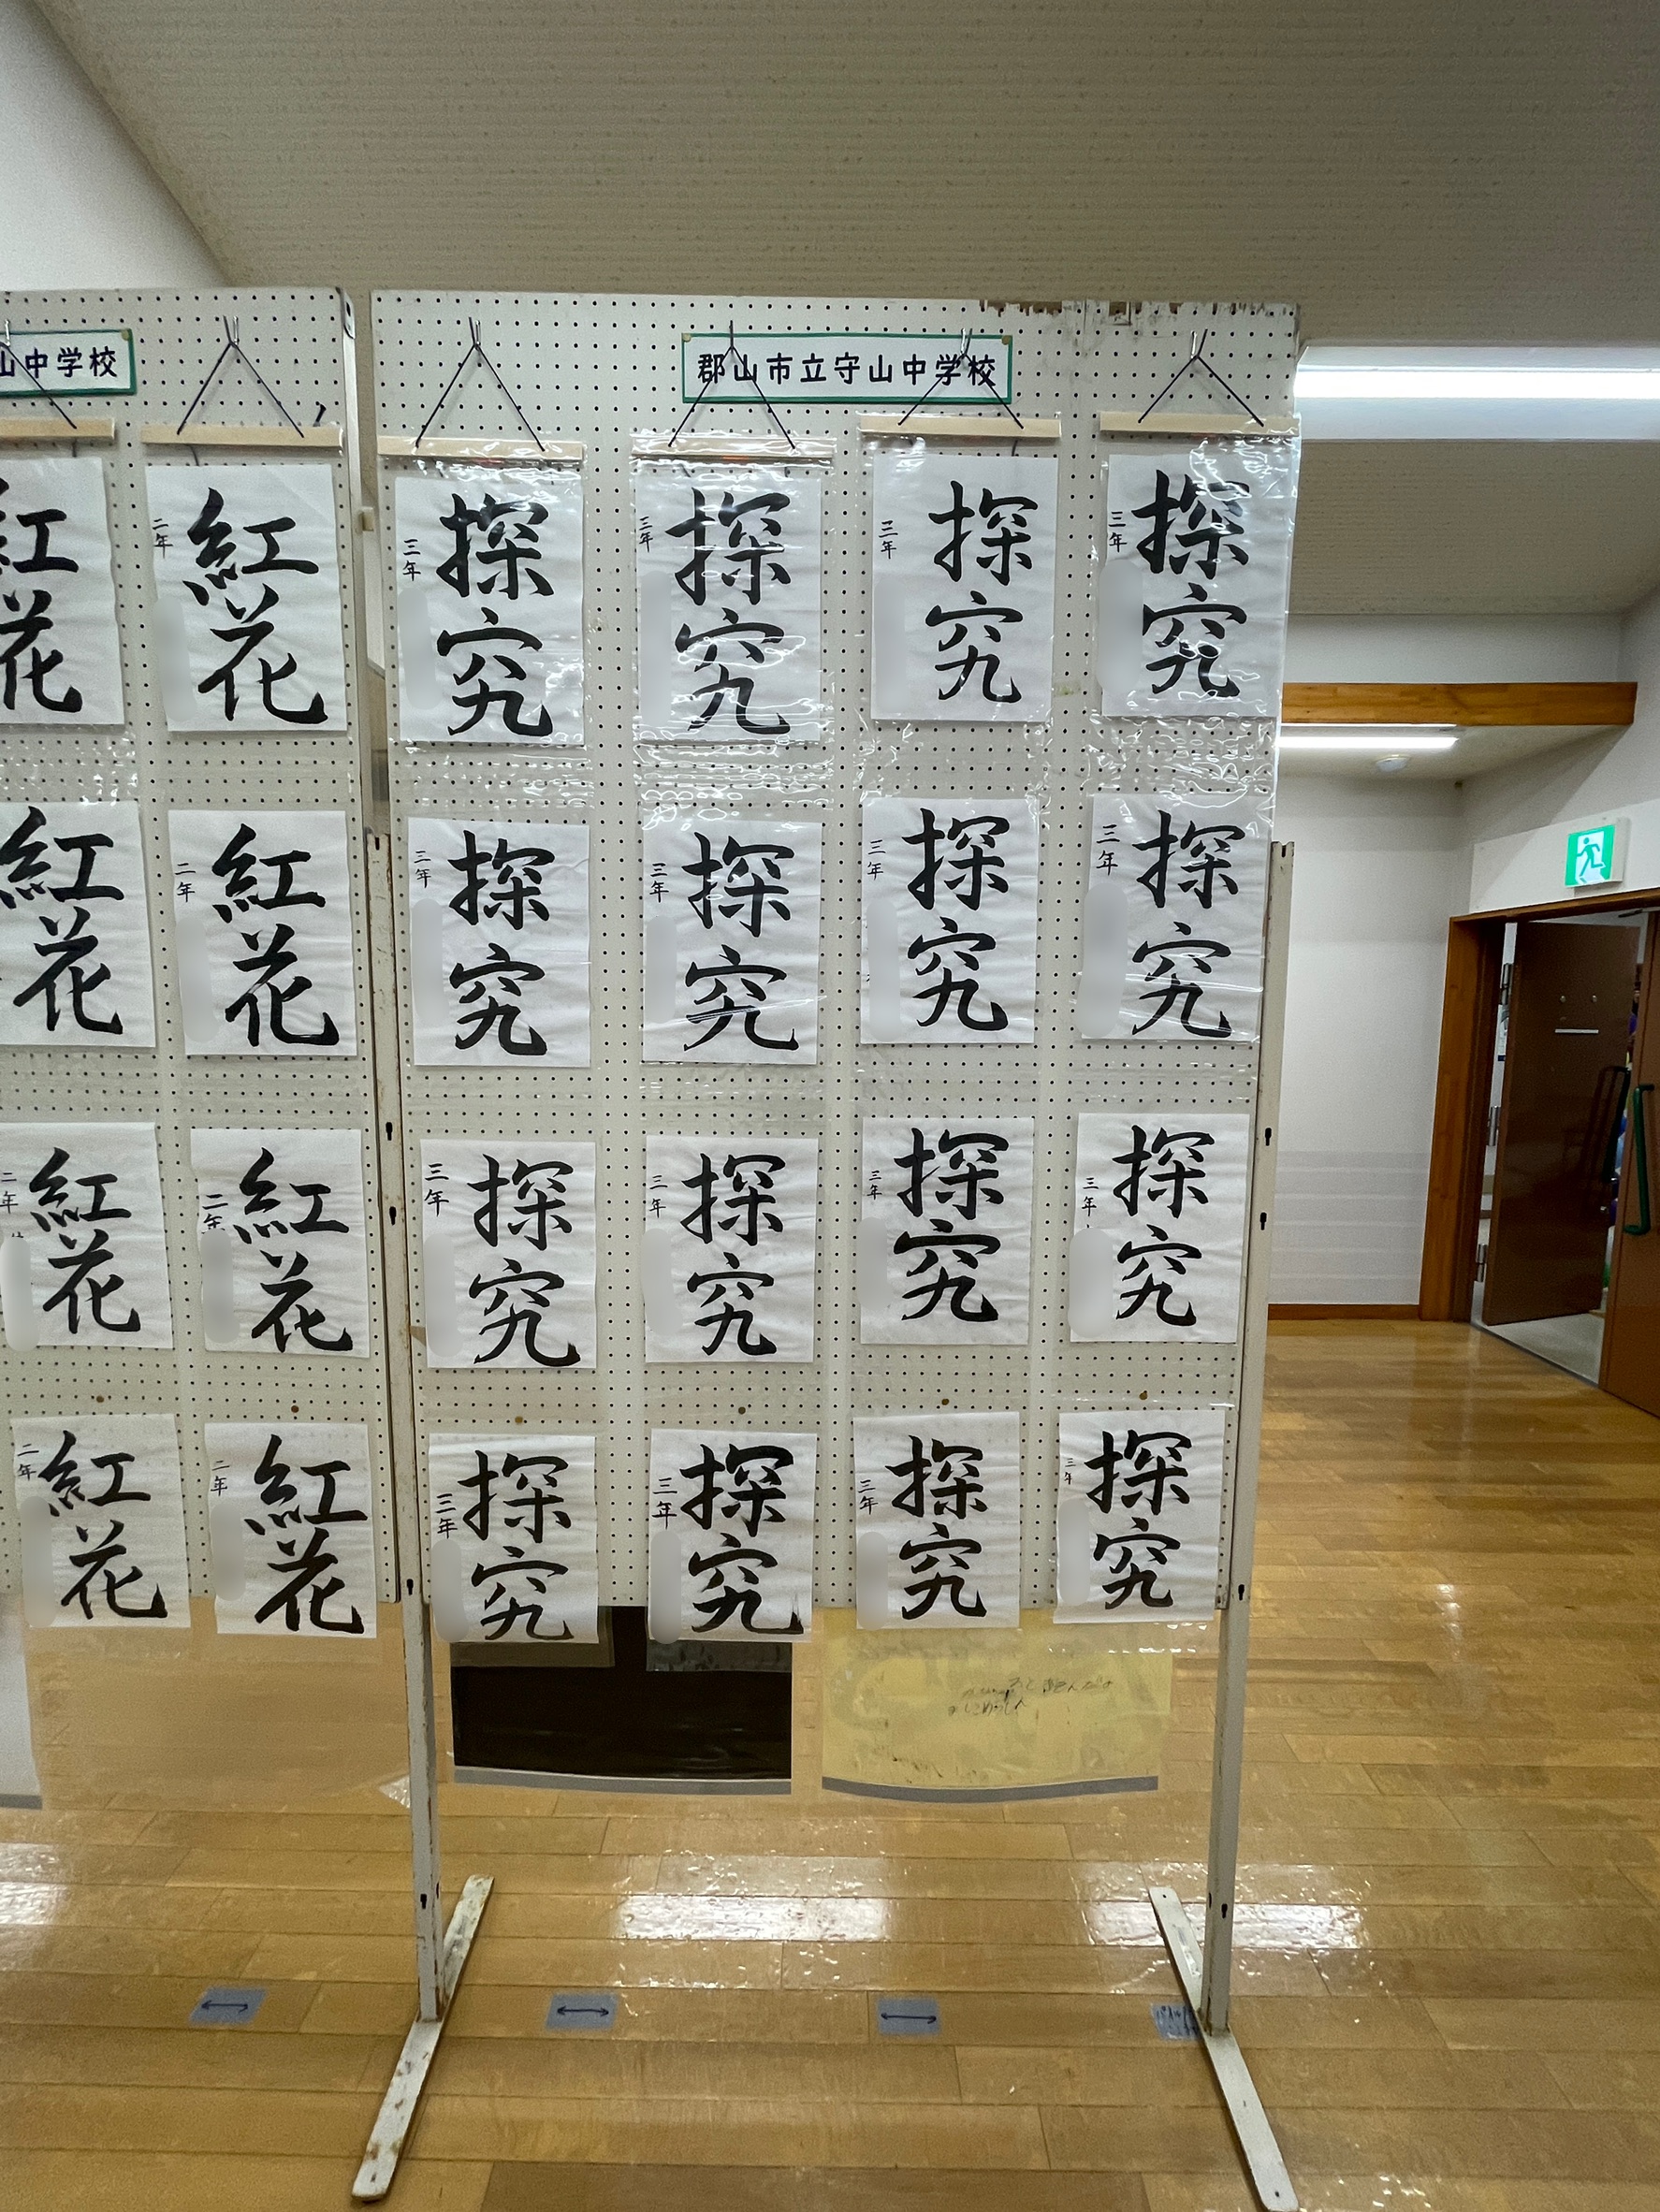 山中学校
郡山市立守山中学校
紅花
二年 紅花
三年 探究
三年 探究
三年 探究
三年 探究
紅花
二年 紅花
三年 探究
三年 探究
三年 探究
三年 探究
二年 紅花
二年 紅花
三年 探究
三年 探究
三年 探究
三年 探究
二年 紅花
二年 紅花
三年 探究
三年 探究
三年 探究
三年 探究